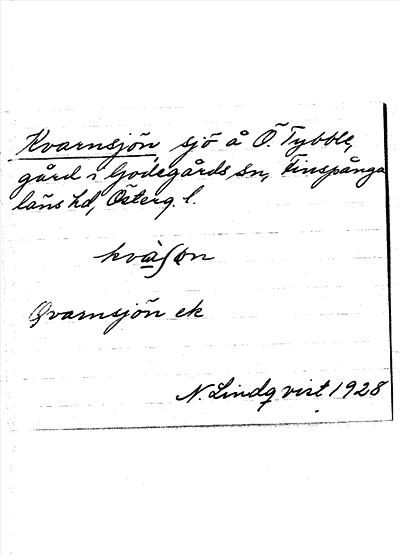 Kvarnsjön sjö å Ö. Tybble,
gård i Godegårds sn, Finspånga
läns hd, Österg. l.
kvàʃøn
Qvarnsjön ek
N. Lindqvist 1928